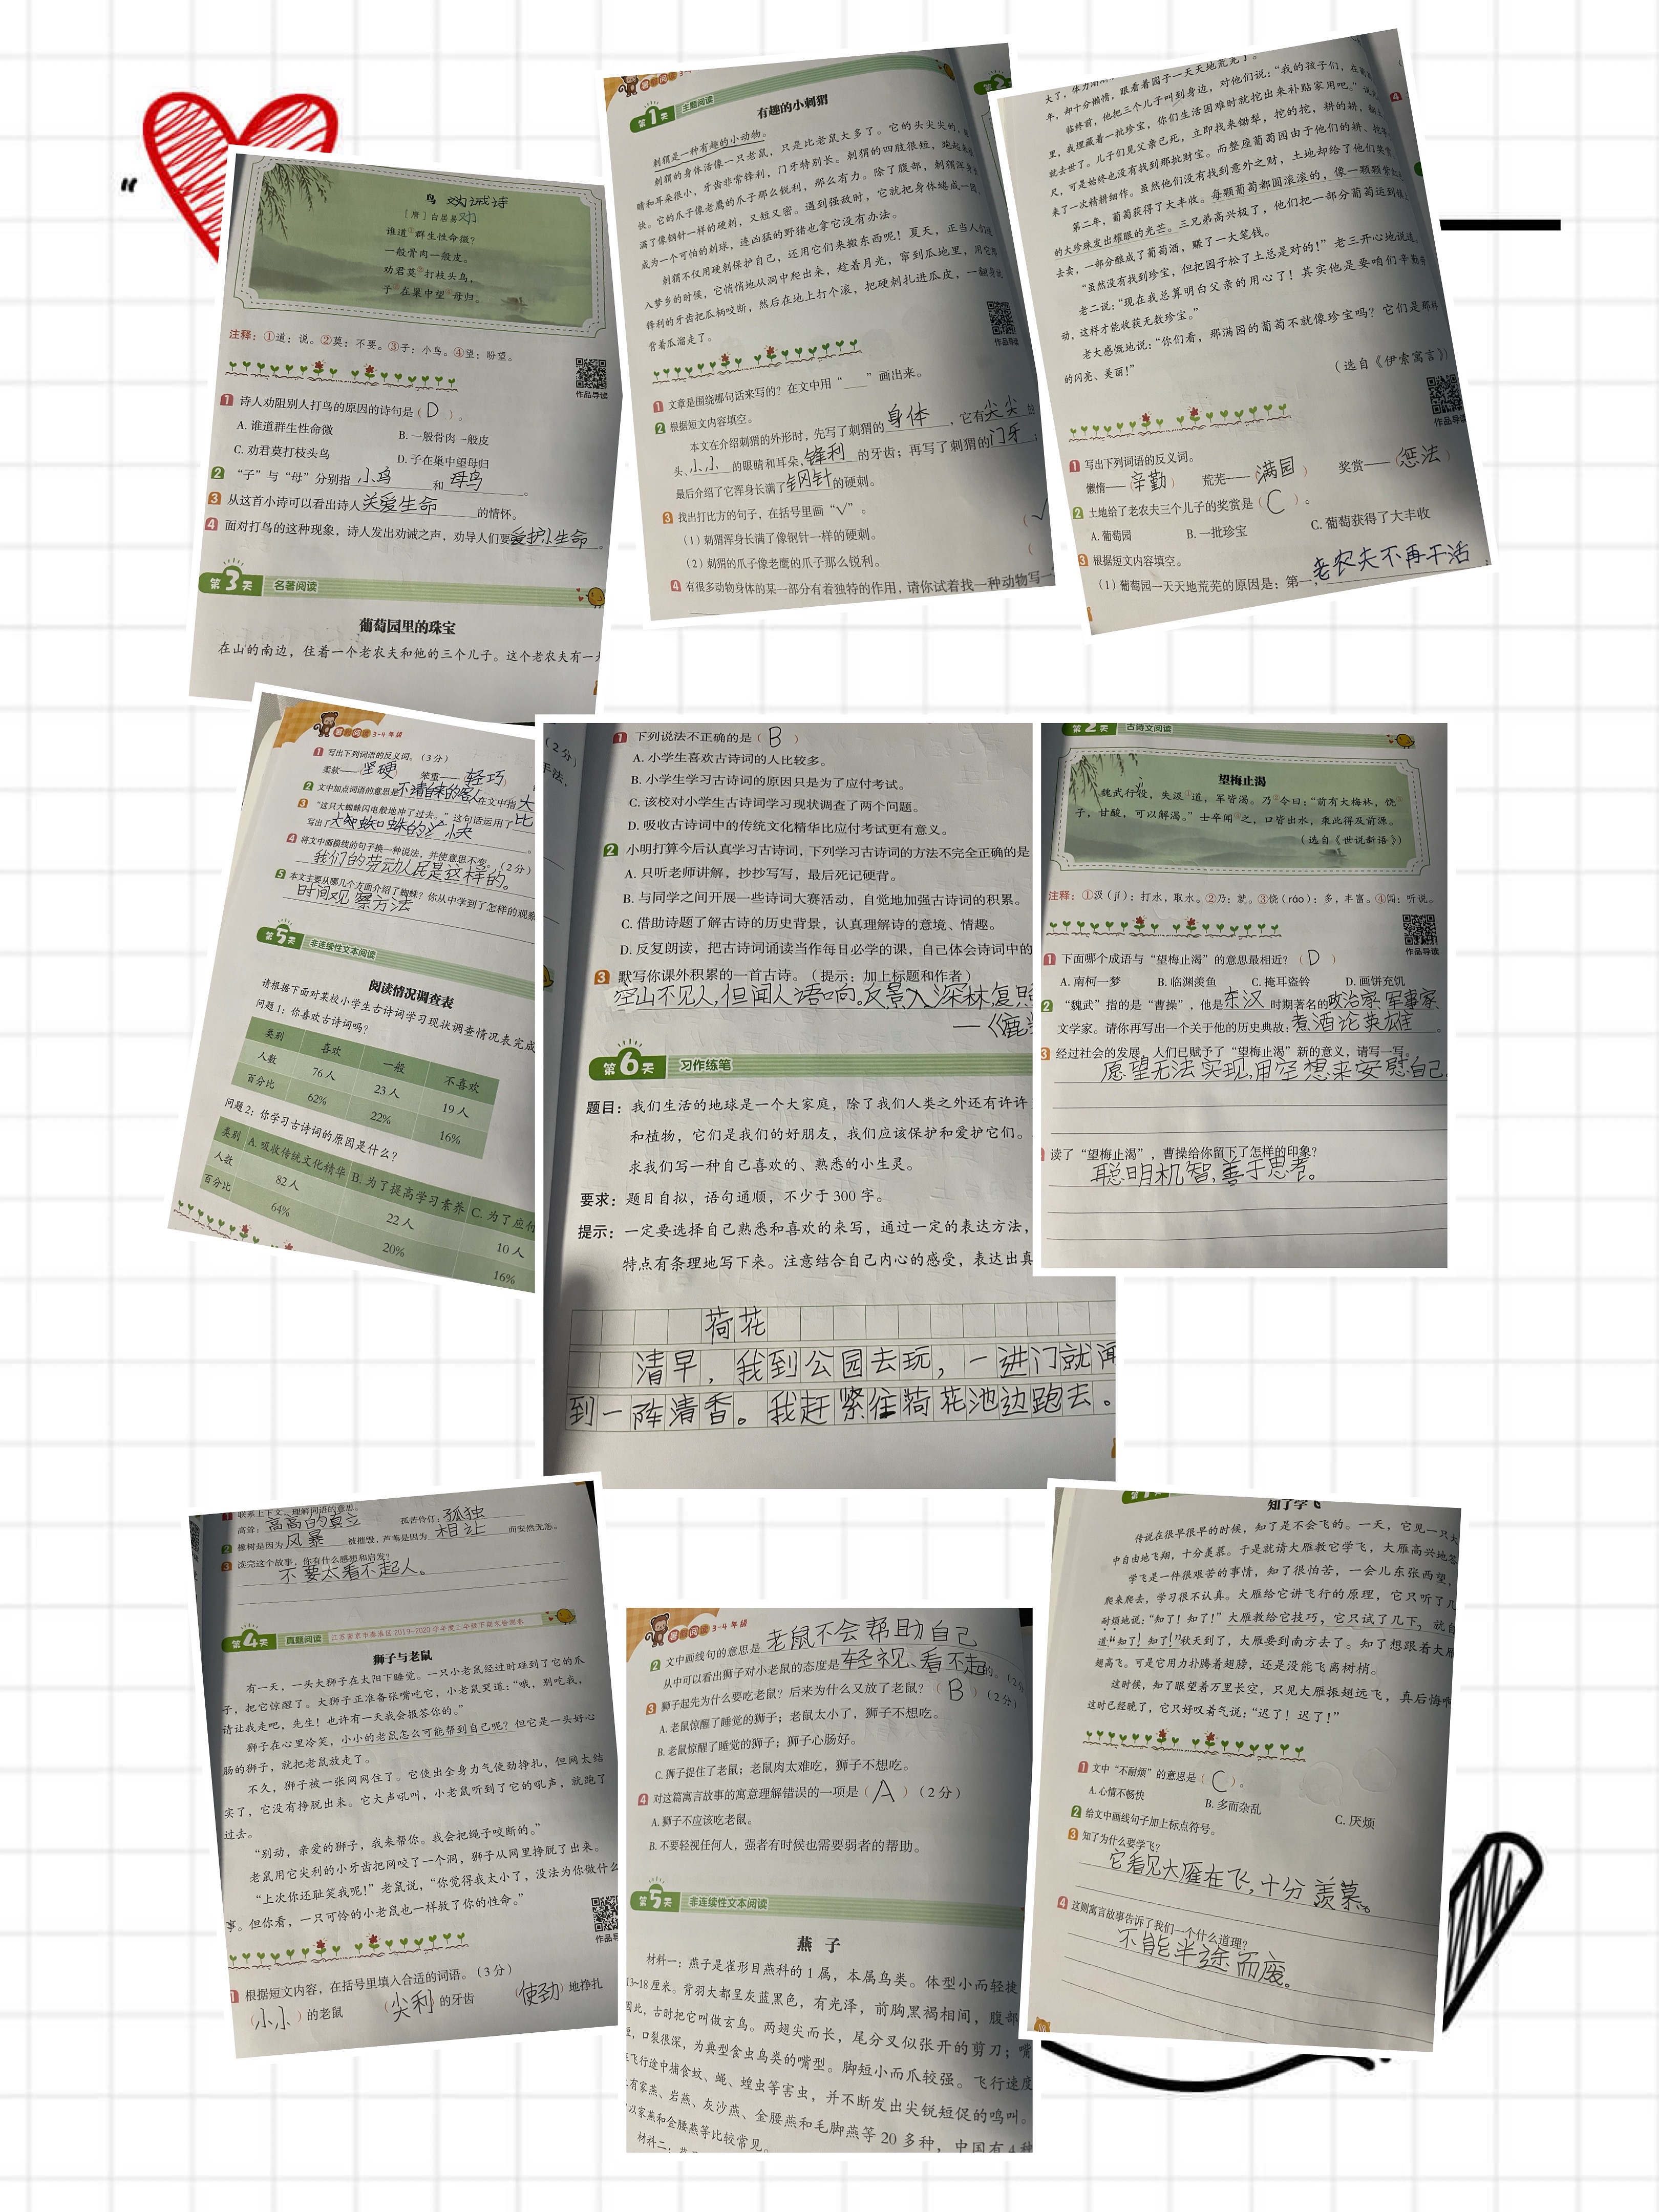 鸟 劝诫诗
[唐]白居易
谁道①群生性命微?
一般骨肉一般皮。
劝君莫②打枝头鸟,
子③在巢中望④母归。
注释:①道:说。②莫:不要。③子:小鸟。④望:盼望。
作品导读
1 诗人劝阻别人打鸟的原因的诗句是( D )。
A. 谁道群生性命微 B. 一般骨肉一般皮
C. 劝君莫打枝头鸟 D. 子在巢中望母归
2 “子”与“母”分别指 小鸟 和 母鸟 。
3 从这首小诗可以看出诗人 关爱生命 的情怀。
4 面对打鸟的这种现象,诗人发出劝诫之声,劝导人们要爱护小生命。
第3天 名著阅读
葡萄园里的珠宝
在山的南边,住着一个老农夫和他的三个儿子。这个老农夫有一
第1天 主题阅读
有趣的小刺猬
刺猬是一种有趣的小动物。
刺猬的身体活像一只老鼠,只是比老鼠大多了。它的头尖尖的,
睛和耳朵很小,牙齿非常锋利,门牙特别长。刺猬的四肢很短,跑起来
快。它的爪子像老鹰的爪子那么锐利,那么有力。除了腹部,刺猬浑身
满了像钢针一样的硬刺,又短又密。遇到强敌时,它就把身体蜷成一团,
成为一个可怕的刺球,连凶猛的野猪也拿它没有办法。
刺猬不仅用硬刺保护自己,还用它们来搬东西呢!夏天,正当人们
入梦乡的时候,它悄悄地从洞中爬出来,趁着月光,窜到瓜地里,用它那
锋利的牙齿把瓜柄咬断,然后在地上打个滚,把硬刺扎进瓜皮,一翻身
背着瓜溜走了。
作品导读
1 文章是围绕哪句话来写的?在文中用“___”画出来。
2 根据短文内容填空。
本文在介绍刺猬的外形时,先写了刺猬的 身体 ,它有尖尖的
头、小小 的眼睛和耳朵,锋利 的牙齿;再写了刺猬的门牙;
最后介绍了它浑身长满了钢针的硬刺。
3 找出打比方的句子,在括号里画“√”。
(1)刺猬浑身长满了像钢针一样的硬刺。 (√
(2)刺猬的爪子像老鹰的爪子那么锐利。 (
4 有很多动物身体的某一部分有着独特的作用,请你试着找一种动物写一
年,却十分懒惰,眼看着园子一天天地荒芜了。
临终前,他把三个儿子叫到身边,对他们说:“我的孩子们,在葡萄
里,我埋藏着一批珍宝,你们生活困难时就挖出来补贴家用吧。”说
就去世了。儿子们见父亲已死,立即找来锄犁,挖的挖,耕的耕,翻
尺,可是始终也没有找到那批财宝。而整座葡萄园由于他们的耕、挖
来了一次精耕细作。虽然他们没有找到意外之财,土地却给了他们奖赏
第二年,葡萄获得了大丰收。每颗葡萄都圆滚滚的,像一颗颗紫红
的大珍珠发出耀眼的光芒。三兄弟高兴极了,他们把一部分葡萄运到镇上
去卖,一部分酿成了葡萄酒,赚了一大笔钱。
“虽然没有找到珍宝,但把园子松了土总是对的!”老三开心地说道。
老二说:“现在我总算明白父亲的用心了!其实他是要咱们辛勤劳
动,这样才能收获无数珍宝。”
老大感慨地说:“你们看,那满园的葡萄不就像珍宝吗?它们是那样
的闪亮、美丽!”
(选自《伊索寓言》)
作品导读
1 写出下列词语的反义词。
懒惰——(辛勤) 荒芜——(满园) 奖赏——(惩法)
2 土地给了老农夫三个儿子的奖赏是( C )。
A. 葡萄园 B. 一批珍宝 C. 葡萄获得了大丰收
3 根据短文内容填空。
(1)葡萄园一天天地荒芜的原因是:第一,老农夫不再干活
暑假阅读 3-4 年级
1 写出下列词语的反义词。(3分)
柔软——(坚硬) 笨重——(轻巧)
2 文中加点词语的意思是不请自来的客人在文中指大
3 “这只大蜘蛛闪电般地冲了过去。”这句话运用了比
写出了
4 将文中画横线的句子换一种说法,并使意思不变。(2分)
我们的劳动人民是这样的。
5 本文主要从哪几个方面介绍了蜘蛛?你从中学到了怎样的观察
时间观察方法
第5天 非连续性文本阅读
阅读情况调查表
请根据下面对某校小学生古诗词学习现状调查情况表完成
问题1:你喜欢古诗词吗?
类别 喜欢 一般 不喜欢
人数 76人 23人 19人
百分比 62% 22% 16%
问题2:你学习古诗词的原因是什么?
类别 A. 吸收传统文化精华 B. 为了提高学习素养 C. 为了应付
人数 82人 22人 10人
百分比 64% 20% 16%
1 下列说法不正确的是( B )
A. 小学生喜欢古诗词的人比较多。
B. 小学生学习古诗词的原因只是为了应付考试。
C. 该校对小学生古诗词学习现状调查了两个问题。
D. 吸收古诗词中的传统文化精华比应付考试更有意义。
2 小明打算今后认真学习古诗词,下列学习古诗词的方法不完全正确的是
A. 只听老师讲解,抄抄写写,最后死记硬背。
B. 与同学之间开展一些诗词大赛活动,自觉地加强古诗词的积累。
C. 借助诗题了解古诗的历史背景,认真理解诗的意境、情趣。
D. 反复朗读,把古诗词诵读当作每日必学的课,自己体会诗词中的
3 默写你课外积累的一首古诗。(提示:加上标题和作者)
空山不见人,但闻人语响。反景入深林,复照
—《鹿
第6天 习作练笔
题目:我们生活的地球是一个大家庭,除了我们人类之外还有许许
和植物,它们是我们的好朋友,我们应该保护和爱护它们。
求我们写一种自己喜欢的、熟悉的小生灵。
要求:题目自拟,语句通顺,不少于300字。
提示:一定要选择自己熟悉和喜欢的来写,通过一定的表达方法,
特点有条理地写下来。注意结合自己内心的感受,表达出真
荷花
清早,我到公园去玩,一进门就闻
到一阵清香。我赶紧往荷花池边跑去。
第2天 古诗文阅读
望梅止渴
魏武行役,失汲①道,军皆渴。乃②令曰:“前有大梅林,饶③
子,甘酸,可以解渴。”士卒闻④之,口皆出水,乘此得及前源。
(选自《世说新语》)
注释:①汲(jí):打水,取水。②乃:就。③饶(ráo):多,丰富。④闻:听说。
作品导读
1 下面哪个成语与“望梅止渴”的意思最相近?( D )
A. 南柯一梦 B. 临渊羡鱼 C. 掩耳盗铃 D. 画饼充饥
2 “魏武”指的是“曹操”,他是东汉 时期著名的政治家、军事家、
文学家。请你再写出一个关于他的历史典故:煮酒论英雄 。
3 经过社会的发展,人们已赋予了“望梅止渴”新的意义,请写一写。
愿望无法实现,用空想来安慰自己
读了“望梅止渴”,曹操给你留下了怎样的印象?
聪明机智,善于思考。
1 联系上下文,理解词语的意思。
高耸:高高的直立 孤苦伶仃:孤独
2 橡树是因为 风暴 被摧毁,芦苇是因为 相让 而安然无恙。
3 读完这个故事,你有什么感想和启发?
不要太看不起人。
第4天 真题阅读 江苏南京市秦淮区2019-2020学年度三年级下期末检测卷
狮子与老鼠
有一天,一头大狮子在太阳下睡觉。一只小老鼠经过时碰到了它的爪
子,把它惊醒了。大狮子正准备张嘴吃它,小老鼠哭道:“哦,别吃我,
请让我走吧,先生!也许有一天我会报答你的。”
狮子在心里冷笑,小小的老鼠怎么可能帮到自己呢?但它是一头好心
肠的狮子,就把老鼠放走了。
不久,狮子被一张网网住了。它使出全身力气使劲挣扎,但网太结
实了,它没有挣脱出来。它大声吼叫,小老鼠听到了它的吼声,就跑了
过去。
“别动,亲爱的狮子,我来帮你。我会把绳子咬断的。”
老鼠用它尖利的小牙齿把网咬了一个洞,狮子从网里挣脱了出来。
“上次你还耻笑我呢!”老鼠说,“你觉得我太小了,没法为你做什么
事。但你看,一只可怜的小老鼠也一样救了你的性命。”
作品导
1 根据短文内容,在括号里填入合适的词语。(3分)
(小小)的老鼠 (尖利)的牙齿 (使劲)地挣扎
暑假阅读 3-4 年级
2 文中画线句的意思是 老鼠不会帮助自己
从中可以看出狮子对小老鼠的态度是 轻视、看不起的。(2分
3 狮子起先为什么要吃老鼠?后来为什么又放了老鼠?( B )(2分)
A. 老鼠惊醒了睡觉的狮子;老鼠太小了,狮子不想吃。
B. 老鼠惊醒了睡觉的狮子;狮子心肠好。
C. 狮子捉住了老鼠;老鼠肉太难吃,狮子不想吃。
4 对这篇寓言故事的寓意理解错误的一项是( A )(2分)
A. 狮子不应该吃老鼠。
B. 不要轻视任何人,强者有时候也需要弱者的帮助。
第5天 非连续性文本阅读
燕 子
材料一:燕子是雀形目燕科的1属,本属鸟类。体型小而轻捷
13~18厘米。背羽大都呈灰蓝黑色,有光泽,前胸黑褐相间,腹部
因此,古时把它叫做玄鸟。两翅尖而长,尾分叉似张开的剪刀;嘴
短,口裂很深,为典型食虫鸟类的嘴型。脚短小而爪较强。飞行速度
飞行途中捕食蚊、蝇、蝗虫等害虫,并不断发出尖锐短促的鸣叫。
有家燕、岩燕、灰沙燕、金腰燕和毛脚燕等20多种,中国有4种
以家燕和金腰燕等比较常见。
材料二:
知了学飞
传说在很早很早的时候,知了是不会飞的。一天,它见一只大
中自由地飞翔,十分羡慕。于是就请大雁教它学飞,大雁高兴地答
学飞是一件很艰苦的事情,知了很怕苦,一会儿东张西望,
爬来爬去,学习很不认真。大雁给它讲飞行的原理,它只听了几
耐烦地说:“知了!知了!”大雁教给它技巧,它只试了几下,就
道“知了!知了!”秋天到了,大雁要到南方去了。知了想跟着大雁
翅高飞。可是它用力扑腾着翅膀,还是没能飞离树梢。
这时候,知了眼望着万里长空,只见大雁振翅远飞,真后悔啊
这时已经晚了,它只好叹着气说:“迟了!迟了!”
1 文中“不耐烦”的意思是( C )。
A. 心情不畅快 B. 多而杂乱 C. 厌烦
2 给文中画线句子加上标点符号。
3 知了为什么要学飞?
它看见大雁在飞,十分羡慕。
4 这则寓言故事告诉了我们一个什么道理?
不能半途而废。